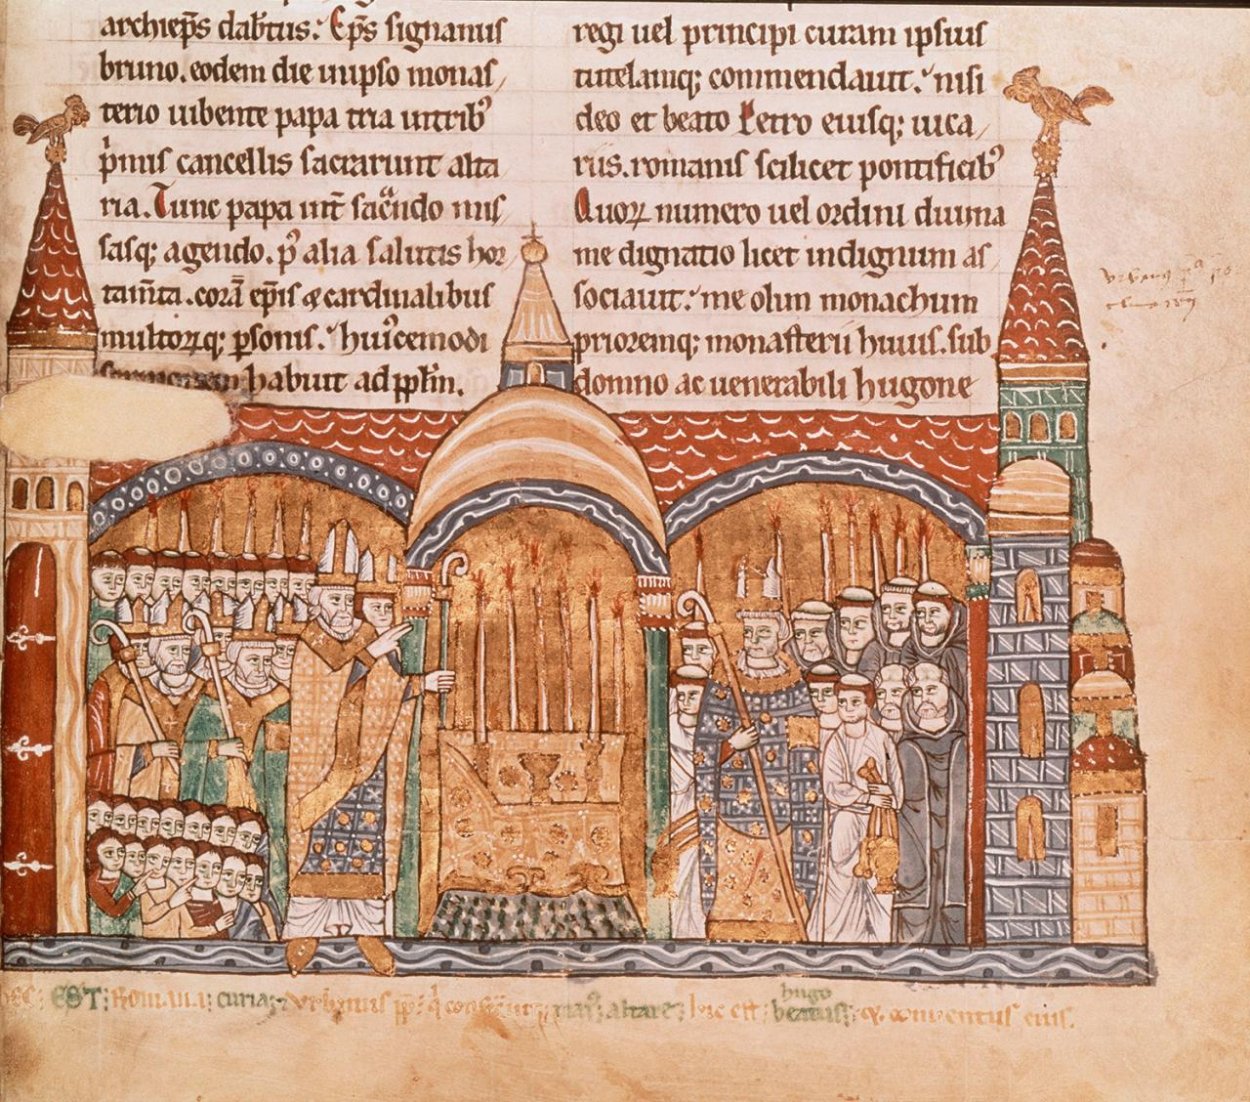 archiep̄s dabtus. Ep̄s signanus
bruno. eodem die in ipso monas
terio iubente papa tria in trib
p̄mis cancellis sacrarunt alta
ria. Tunc papa int̄ sac̄ndo mis
sasq; agendo. p̄ alia salutis hor
tam̄ta. corā ep̄is & cardinalibus
multorꝝq; ꝑsonis. huiꝰcemodi
habuit ad ppl̄m.
regi uel principi curam ipsius
tutelamq; commendauit. nisi
deo et beato Petro eiusq; uica
riis. romanis scilicet pontificibꝰ
Quorꝝ numero uel ordini diuina
me dignatio licet indignum as
sociauit. me olim monachum
prioremq; monasterii huius. sub
domno ac uenerabili hugone
EST: Romana: curia: Urbanus pp̄: maiꝰ: altare: hic est: hugo beatus: conventus eius.